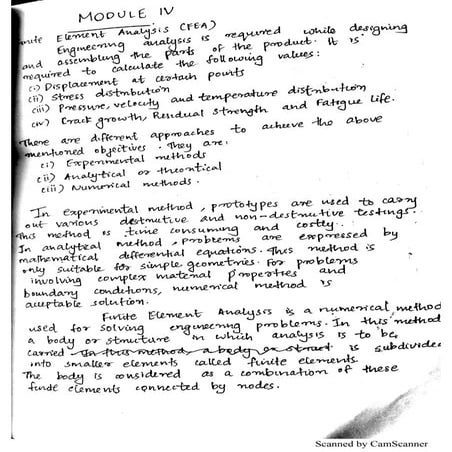 MODULE IV
nite Element Analysis (FEA)
Engineering analysis is required while designing
and assembling the parts of the product. It is
required to calculate the following values:
(i) Displacement at certain points
(ii) Stress distribution
(iii) Pressure, velocity and temperature distribution
(iv) Crack growth, Residual strength and Fatigue life.
There are different approaches to achieve the above
mentioned objectives. They are:
(i) Experimental methods
(ii) Analytical or theoritical
(iii) Numerical methods.
In experimental method, prototypes are used to carry
out various destructive and non-destructive testings.
This method is time consuming and costly.
In analytical method, problems are expressed by
mathematical differential equations. This method is
only suitable for simple geometries. For problems
involving complex material properties and
boundary conditions, numerical method is
acceptable solution.
Finite Element Analysis is a numerical method
used for solving engineering problems. In this method
a body or structure in which analysis is to be
carried In this method, a body or struct is subdivided
into smaller elements called finite elements.
The body is considered as a combination of these
finite elements connected by nodes.
Scanned by CamScanner